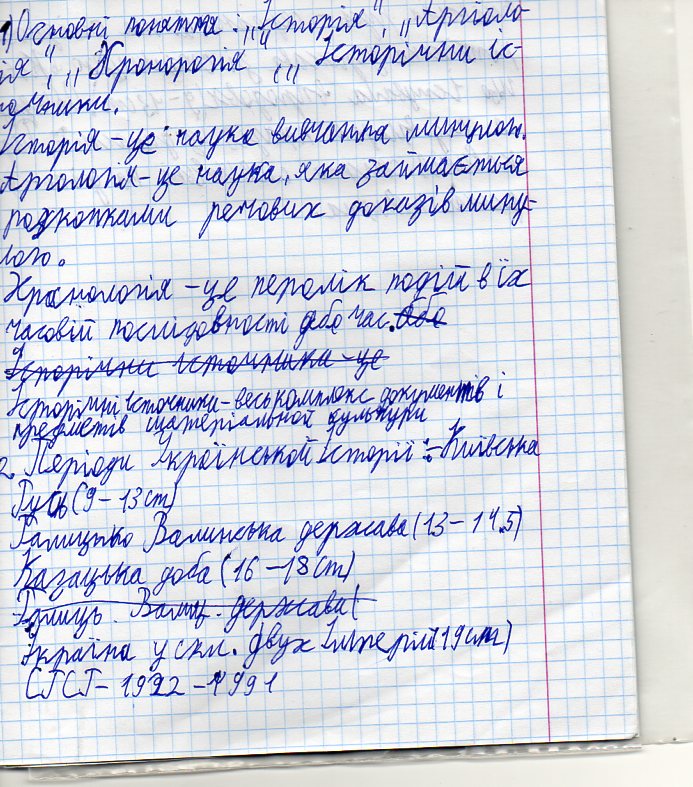 1) Основні поняття: ,,Історія", ,,Архіоло-
ія", ,,Хронологія", ,,Історічни іс-
точники.
Історія - це наука вивчення минулого.
Архіологія - це наука, яка займається
розкопками речових доказів мину-
лого.
Хронологія - це перелік подій в їх
часовій послідовності або час. або
Історічни істочники - це
Історічні істочники - весь комплекс документів і
предметів матеріальной культури
2. Періоди Української Історії: - Київська
Русь (9 - 13 ст)
Галицько Валинська держава (13 - 14.5)
Казацька доба (16 - 18 ст)
Галиць. Валин. держава (
Україна у скл. двух Імперій (19 ст)
СРСР - 1922 - 1991